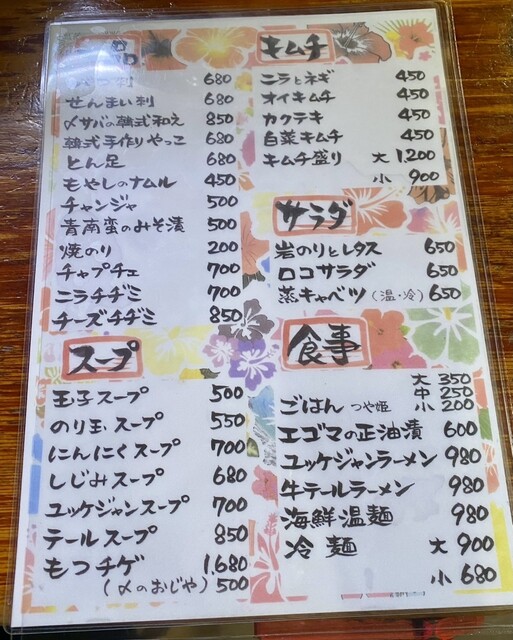 一品
刺 680
せんまい刺 680
〆サバの韓式和え 850
韓式手作りやっこ 680
とん足 680
もやしのナムル 450
チャンジャ 500
青南蛮のみそ漬 500
焼のり 200
チャプチェ 700
ニラチヂミ 700
チーズチヂミ 850
スープ
玉子スープ 500
のり玉スープ 550
にんにくスープ 700
しじみスープ 680
ユッケジャンスープ 700
テールスープ 850
もつチゲ 1,680
(〆のおじや) 500
キムチ
ニラとネギ 450
オイキムチ 450
カクテキ 450
白菜キムチ 450
キムチ盛り 大 1,200
小 900
サラダ
岩のりとレタス 650
ロコサラダ 650
蒸キャベツ (温・冷) 650
食事
大 350
中 250
ごはん つや姫 小 200
エゴマの正油漬 600
ユッケジャンラーメン 980
牛テールラーメン 980
海鮮温麺 980
冷麺 大 900
小 680